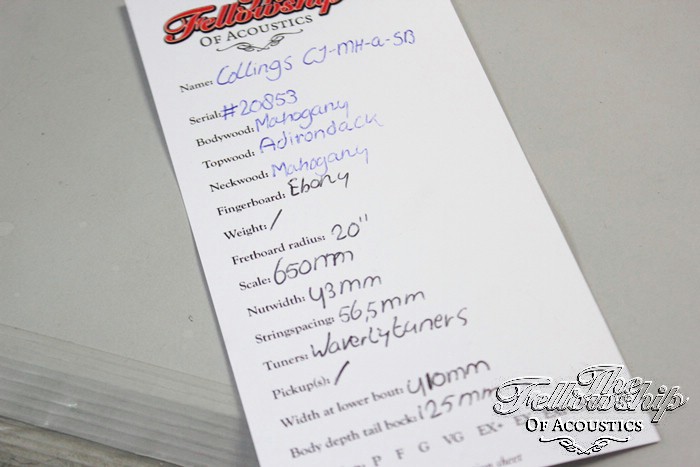 Fellowship
OF ACOUSTICS
Name: Collings CJ-MH-a-SB
Serial: #20853
Bodywood: Mahogany
Topwood: Adirondack
Neckwood: Mahogany
Fingerboard: Ebony
Weight: /
Fretboard radius: 20"
Scale: 650mm
Nutwidth: 43mm
Stringspacing: 56,5mm
Tuners: Waverlytuners
Pickup(s): /
Width at lower bout: 410mm
Body depth tail bock: 125mm
P F G VG EX+ EX
short
The
Fellowship
OF ACOUSTICS